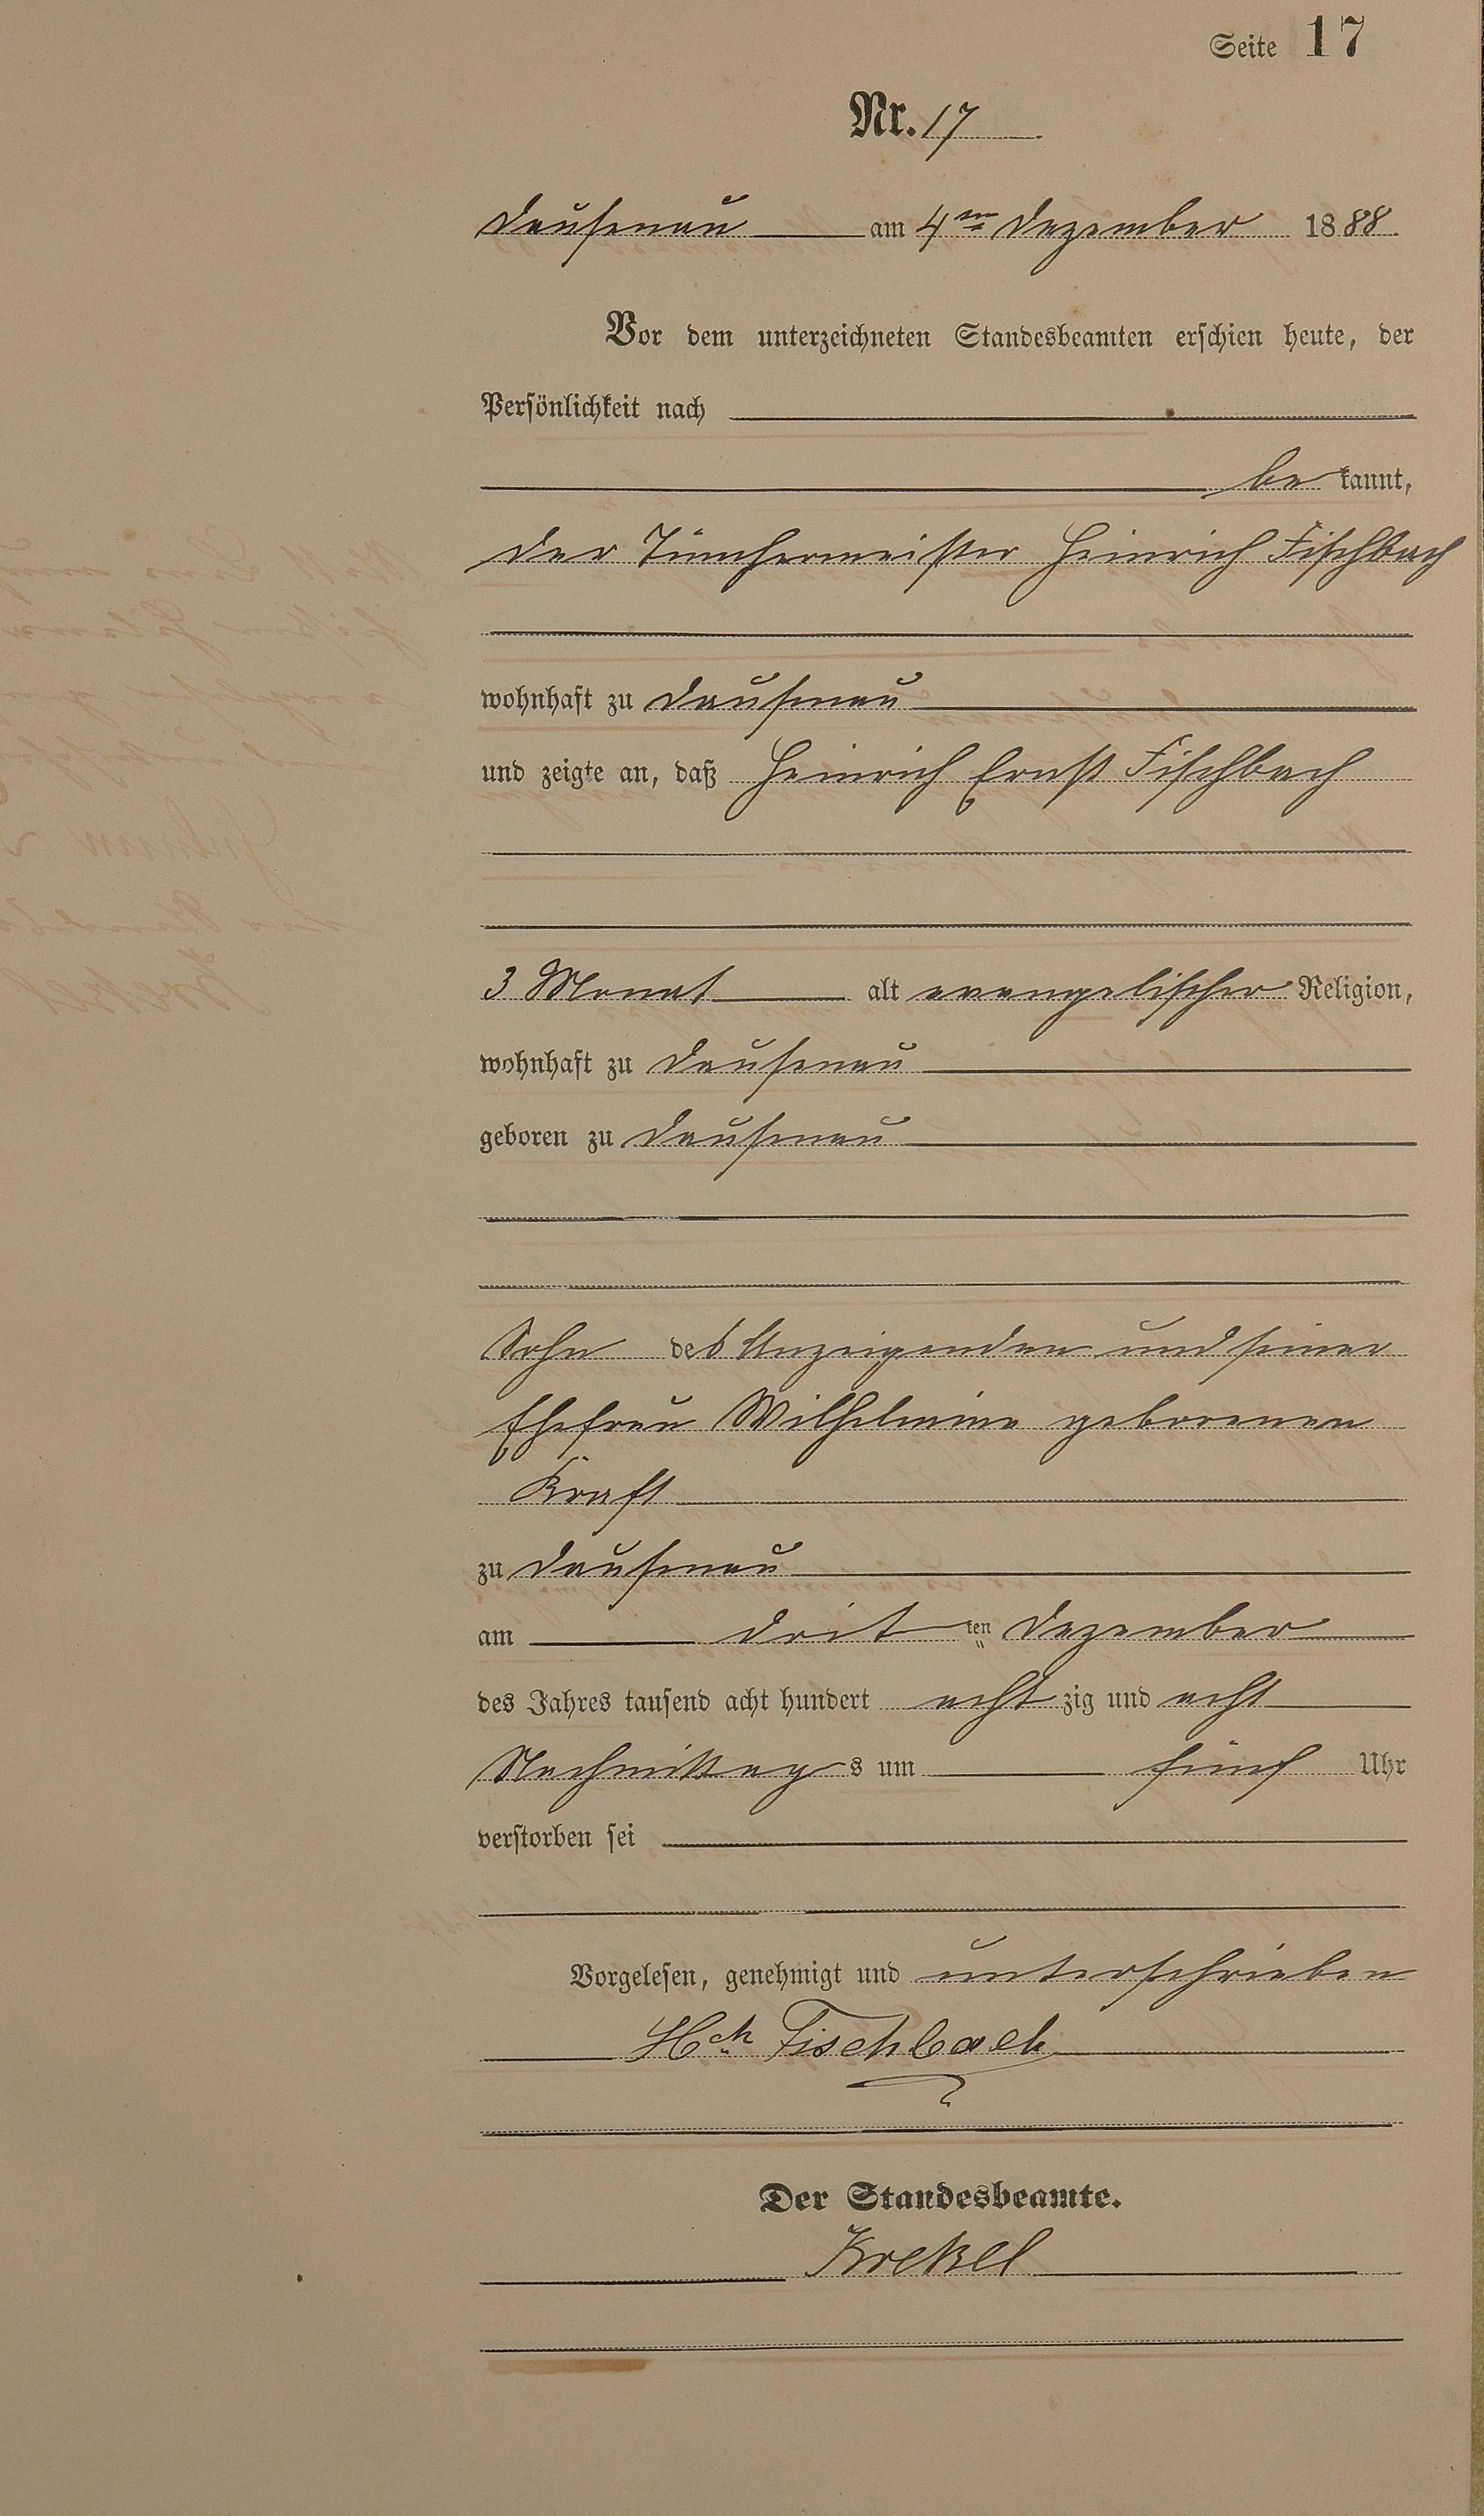 Seite 17
Nr. 17
Dausenau am 4ten Dezember 1888.
Vor dem unterzeichneten Standesbeamten erschien heute, der
Persönlichkeit nach
be kannt,
der Tünchermeister Heinrich Fischbach
wohnhaft zu Dausenau
und zeigte an, daß Heinrich Ernst Fischbach
3 Monat alt evangelischer Religion,
wohnhaft zu Dausenau
geboren zu Dausenau
Sohn des Anzeigenden und seiner
Ehefrau Wilhelmine geborenen
Kraft
zu Dausenau
am dritten Dezember
des Jahres tausend acht hundert acht zig und acht
Nachmittags um fünf Uhr
verstorben sei
Vorgelesen, genehmigt und unterschrieben
Hch Fischbach
Der Standesbeamte.
Krekel